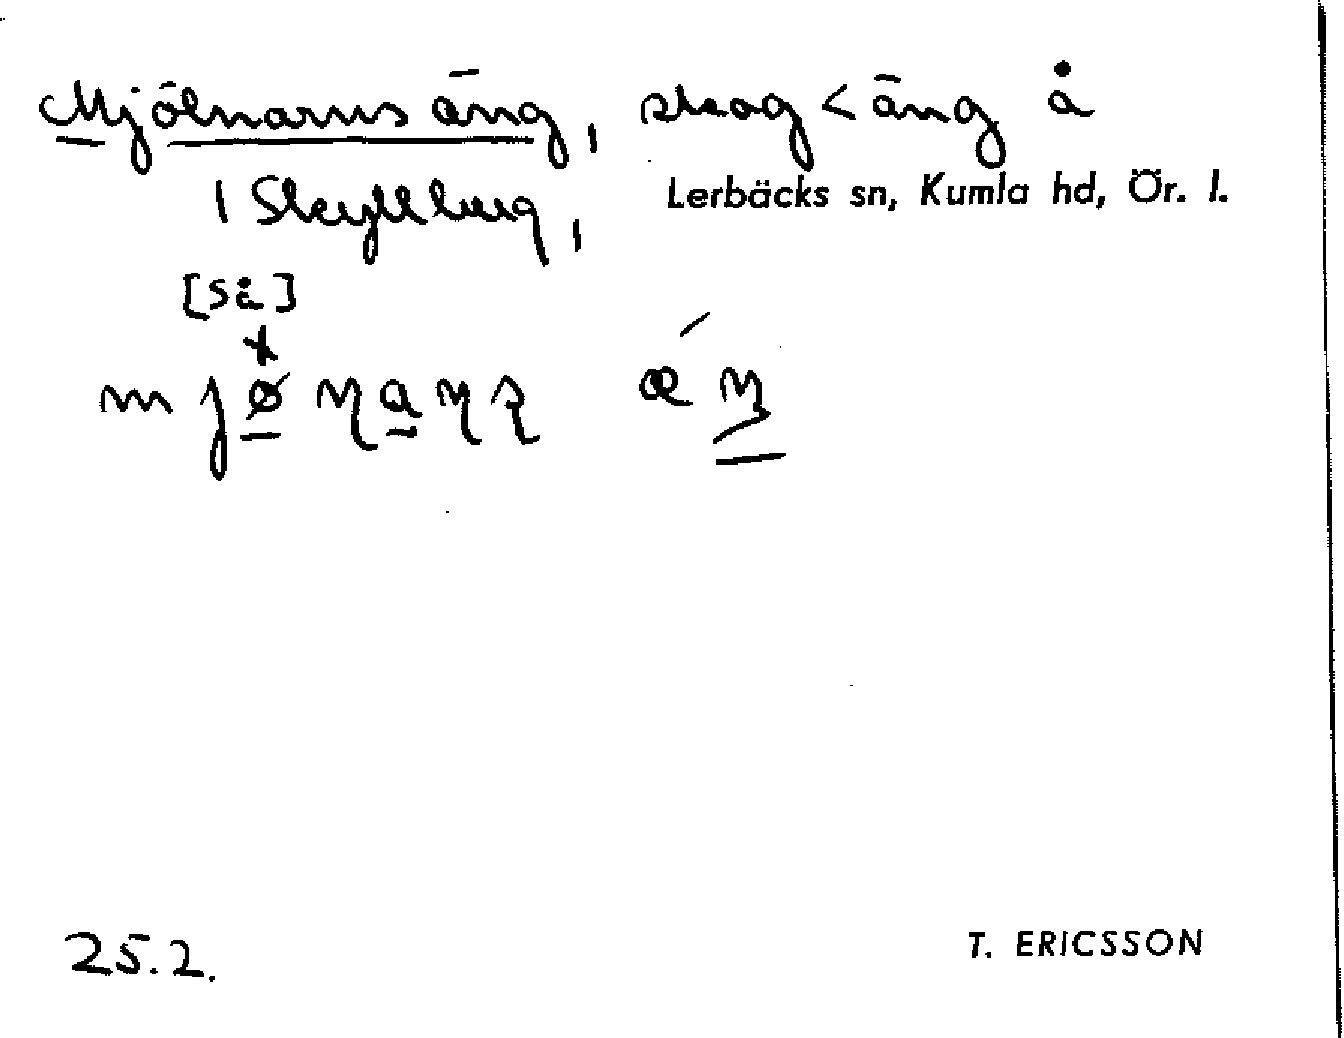 Mjölnarns äng, skog < äng å
1 Skyllberg,
Lerbäcks sn, Kumla hd, Ör. l.
[så]
25.2.
T. ERICSSON